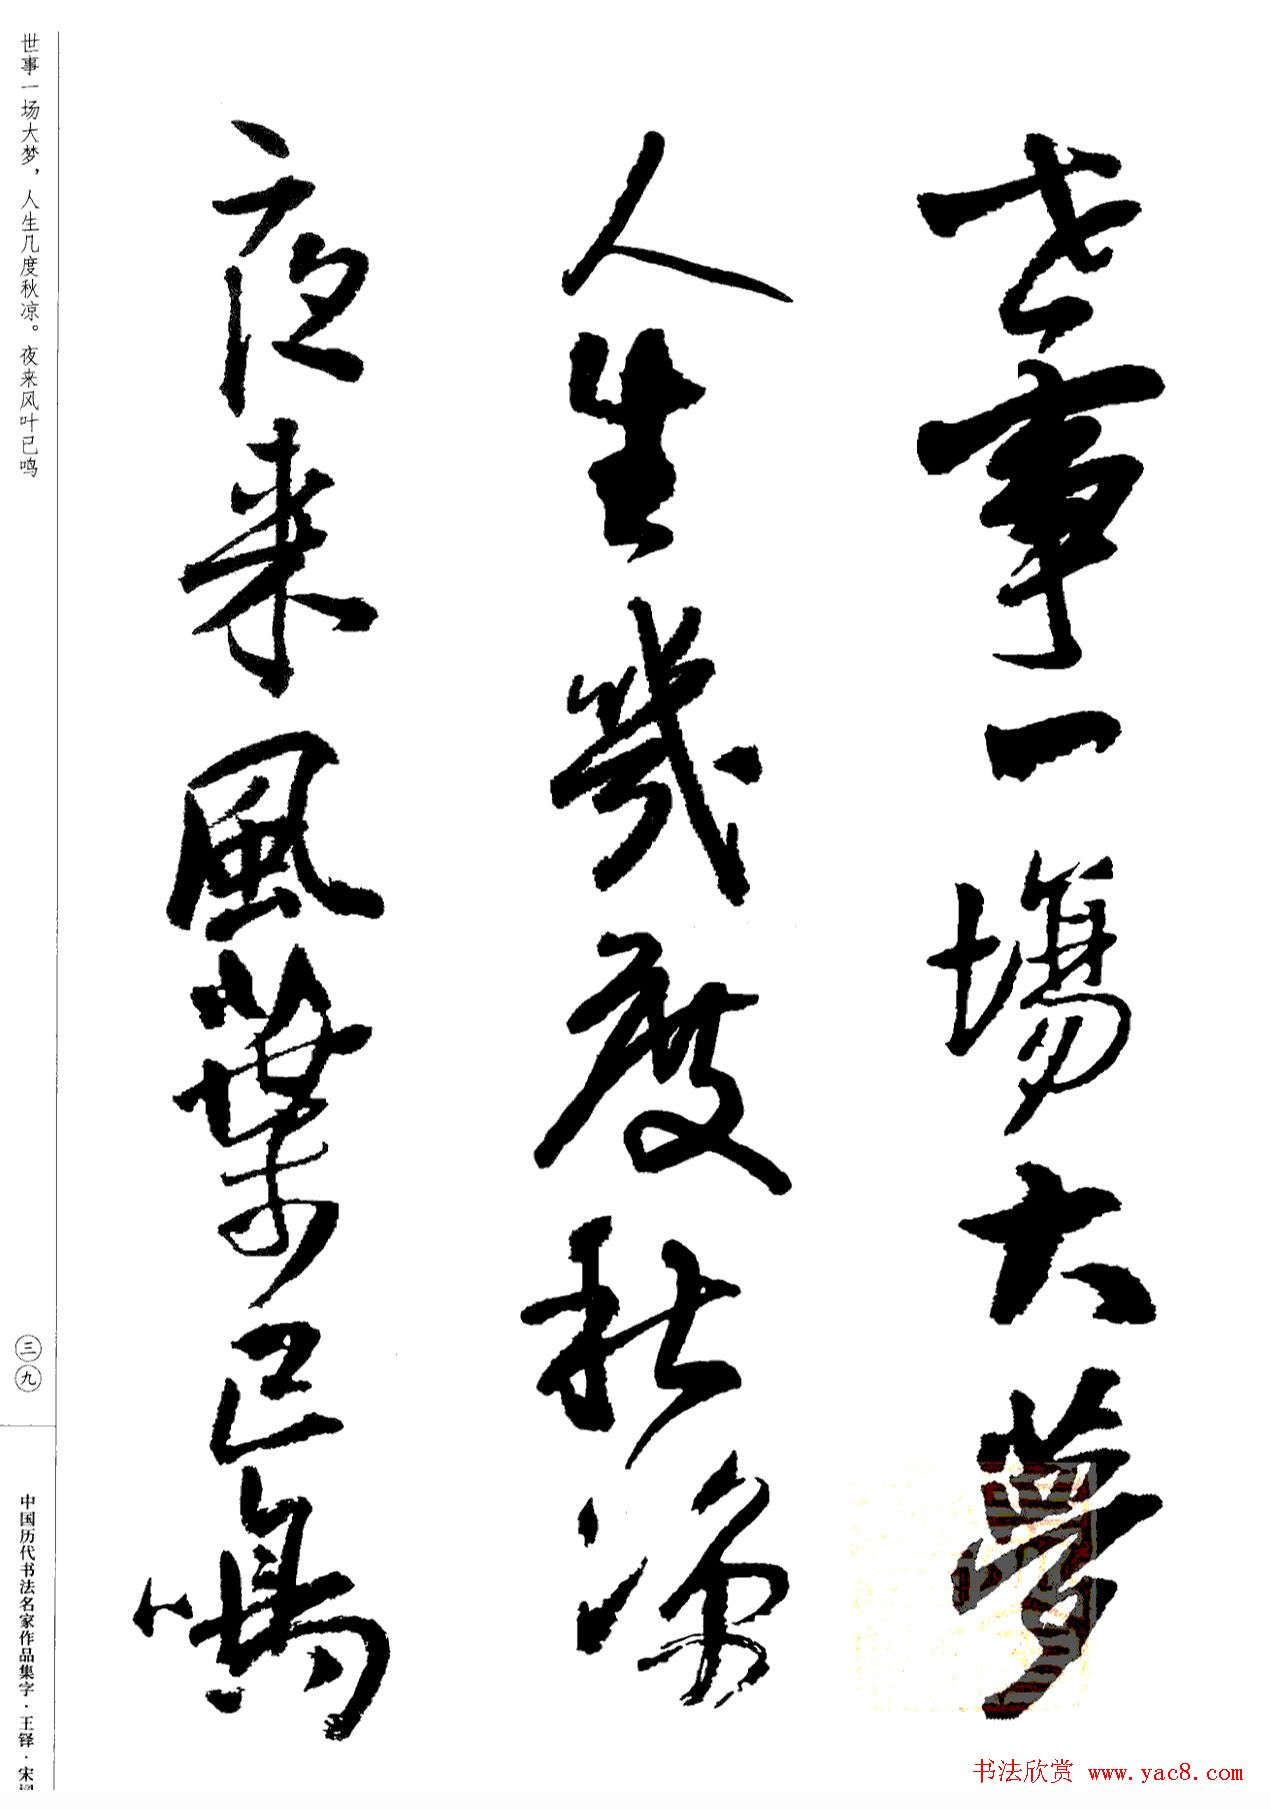 世事一場大夢
人生幾度秋涼
夜来風葉已鳴
世事一场大梦，人生几度秋凉。夜来风叶已鸣
三九
中国历代书法名家作品集字·王铎·宋
书法欣赏 www.yac8.com